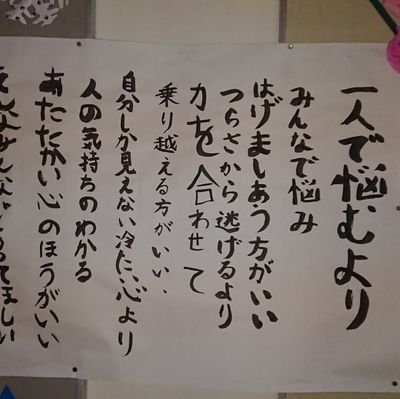 一人で悩むより
みんなで悩み
はげましあう方がいい
つらさから逃げるより
力を合わせて
乗り越える方がいい、
自分しか見えない冷たい心より
人の気持ちのわかる
あたたかい心のほうがいい
ってほしい